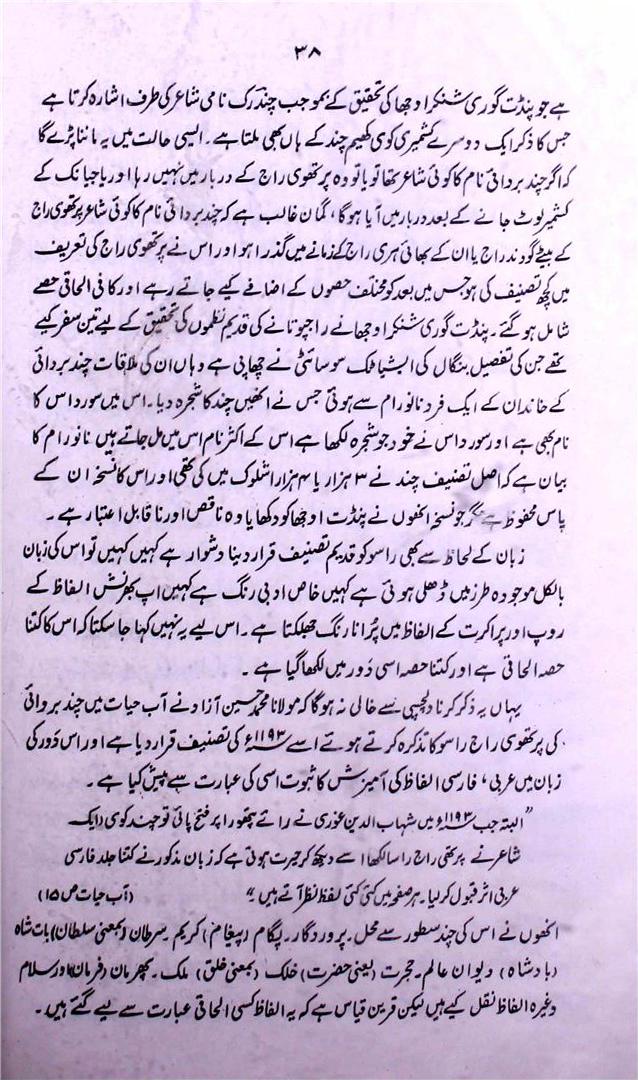 ۳۸
ہے جو پنڈت گوری شنکر اوجھا کی تحقیق کے بموجب چندرک نامی شاعر کی طرف اشارہ کرتا ہے
جس کا ذکر ایک دوسرے کشمیری کوی کھیم چند کے ہاں بھی ملتا ہے۔ ایسی حالت میں یہ ماننا پڑے گا
کہ اگر چند بردائی نام کا کوئی شاعر تھا تو یا تو وہ پرتھوی راج کے دربار میں نہیں رہا اور یا جیانک کے
کشمیر لوٹ جانے کے بعد دربار میں آیا ہوگا، گمان غالب ہے کہ چند بردائی نام کا کوئی شاعر پرتھوی راج
کے بیٹے گووند راج یا ان کے بھائی ہری راج کے زمانے میں گذرا ہو اور اس نے پرتھوی راج کی تعریف
میں کچھ تصنیف کی ہو جس میں بعد کو مختلف حصوں کے اضافے کیے جاتے رہے اور کافی الحاقی حصے
شامل ہوگئے۔ پنڈت گوری شنکر اوجھا نے راجپوتانے کی قدیم نظموں کی تحقیق کے لیے تین سفر کیے
تھے جن کی تفصیل بنگال کی ایشیاٹک سوسائٹی نے چھاپی ہے وہاں ان کی ملاقات چند بردائی
کے خاندان کے ایک فرد نانو رام سے ہوئی جس نے انھیں چند کا شجرہ دیا۔ اس میں سورداس کا
نام بھی ہے اور سورداس نے خود جو شجرہ لکھا ہے اس کے اکثر نام اس میں مل جاتے ہیں نانو رام کا
بیان ہے کہ اصل تصنیف چند نے ۳ ہزار یا ۴ ہزار اشلوک میں کی تھی اور اس کا نسخہ ان کے
پاس محفوظ ہے مگر جو نسخہ انھوں نے پنڈت اوجھا کو دکھایا وہ ناقص اور ناقابل اعتبار ہے۔
زبان کے لحاظ سے بھی راسو کو قدیم تصنیف قرار دینا دشوار ہے کہیں کہیں تو اس کی زبان
بالکل موجودہ طرز میں ڈھلی ہوئی ہے کہیں خاص ادبی رنگ ہے کہیں اپ بھرنش الفاظ کے
روپ اور پراکرت کے الفاظ میں پُرانا رنگ جھلکتا ہے۔ اس لیے یہ نہیں کہا جا سکتا کہ اس کا کتنا
حصہ الحاقی ہے اور کتنا حصہ اسی دَور میں لکھا گیا ہے۔
یہاں یہ ذکر کرنا دلچسپی سے خالی نہ ہوگا کہ مولانا محمد حسین آزاد نے آب حیات میں چند بردائی
کی پرتھوی راج راسو کا تذکرہ کرتے ہوئے اسے ۱۱۹۳ء کی تصنیف قرار دیا ہے اور اس دَور کی
زبان میں عربی، فارسی الفاظ کی آمیزش کا ثبوت اسی کی عبارت سے پیش کیا ہے۔
"البتہ جب ۱۱۹۳ء میں شہاب الدین غوری نے رائے پتھورا پر فتح پائی تو چند کوی دایک
شاعر نے پرتھی راج راسا لکھا اسے دیکھ کر حیرت ہوتی ہے کہ زبان مذکور نے کتنا جلد فارسی
عربی اثر قبول کرلیا۔ ہر صفحہ میں کئی کئی لفظ نظر آتے ہیں۔" (آب حیات ص ۱۵)
انھوں نے اس کی چند سطور سے محل۔ پروردگار۔ پگام (پیغام) کریم۔ سرطان (بمعنی سلطان) بات شاہ
(بادشاہ) دیوان عالم۔ حجرت (یعنی حضرت) خلک (بمعنی خلق) ملک۔ پھرمان (فرمان) اور سلام
وغیرہ الفاظ نقل کیے ہیں لیکن قرین قیاس ہے کہ یہ الفاظ کسی الحاقی عبارت سے لیے گئے ہیں۔